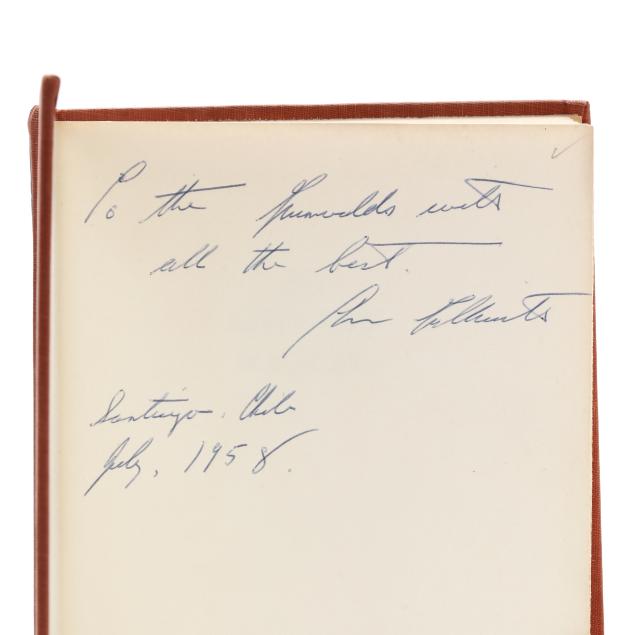 To the Grunwalds with
all the best.
Santiago, Chile
July, 1958.